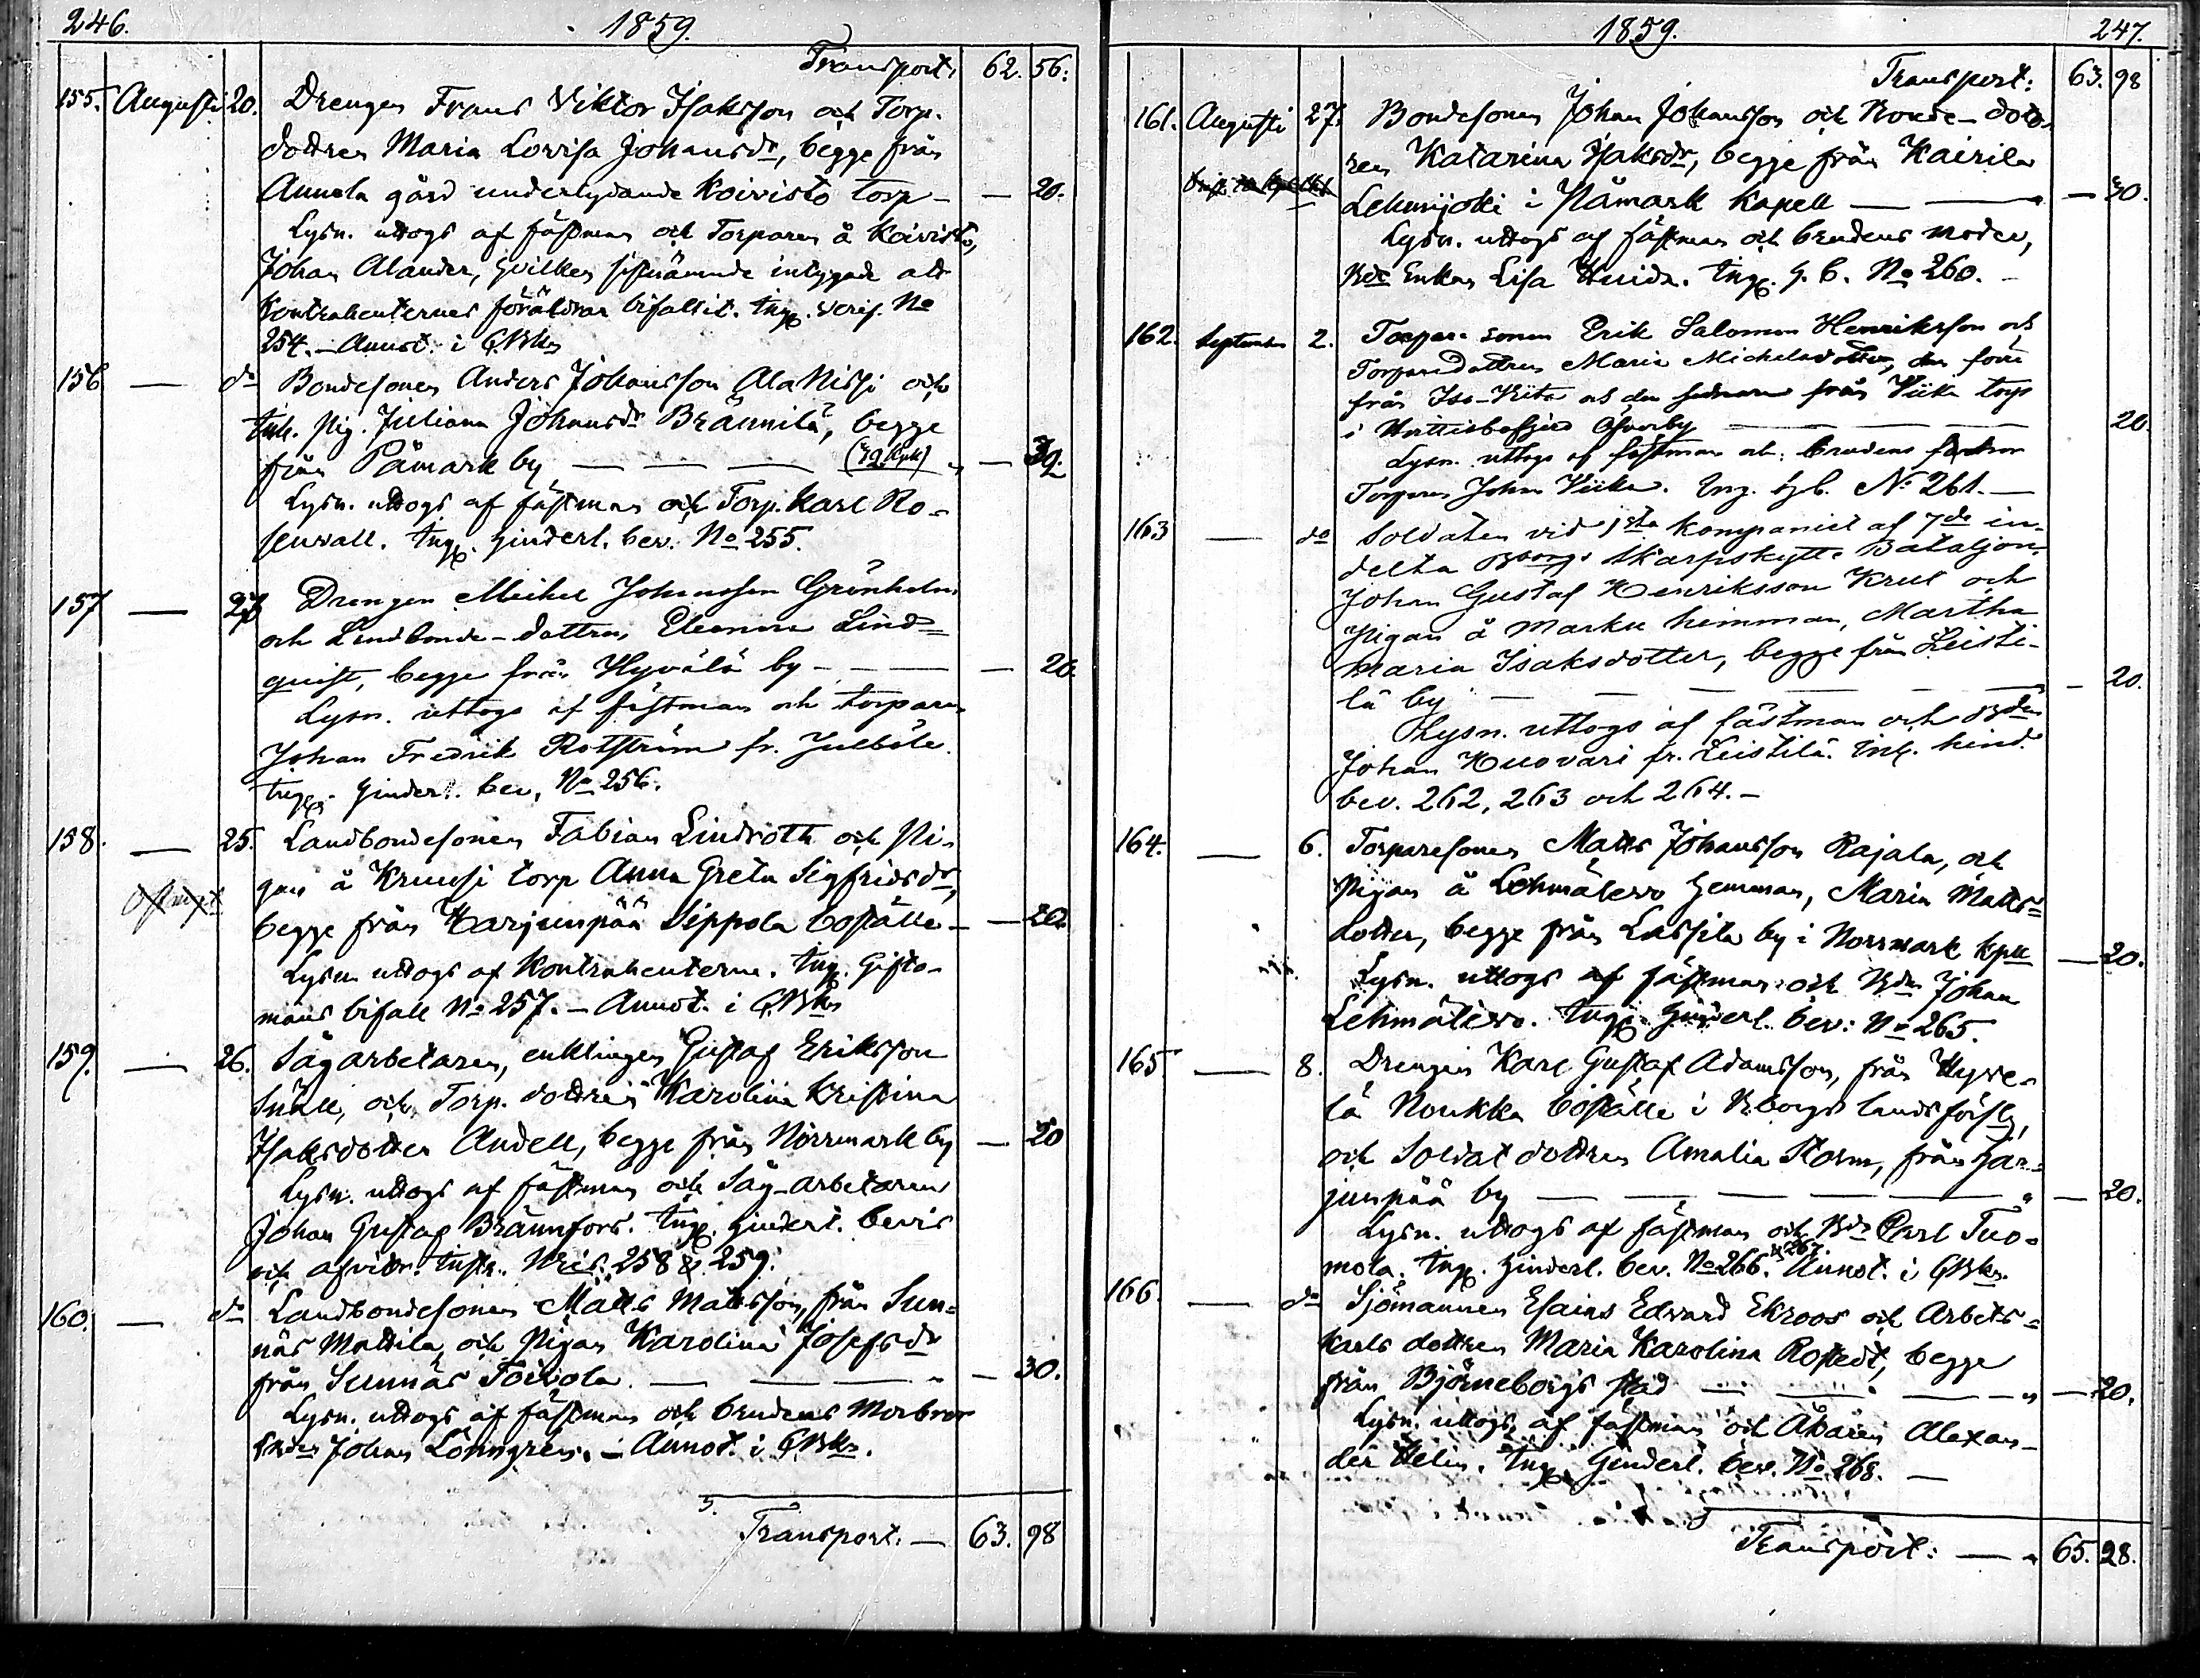 246. 1859.
Transport. 62. 56.
155. Augusti 20. Drengen Frans Viktor Isaksson och Torp.
dottren Maria Lovisa Johansdr, begge från
Annola gård underlydande Koivisto torp — — 20.
Lysn. uttogs af fästman och Torparen å Koivisto,
Johan Alander, hvilken sistnämnde intygade att
Kontrahenternes föräldrar bifallit. Ing. verif. No
254. — Annot. i
156 — do Bondesonen Anders Johansson AlaNissi och
Inh. pig. Juliana Johansdr Brännilä, begge
från Påmark by — — — — 32.
Lysn. uttogs af fästman och Torp. Karl Ro-
senvall. Ing. hinderl. bev. No 255.
157 — 23 Drengen Michel Johansson Grönholm
och Landbonde-dottren Eleonora Lind=
quist, begge från Hyvälä by — — — 20.
Lysn. uttogs af fästman och torparen
Johan Fredrik Rotström fr. Julböle.
Ing. hinderl. bev. No 256.
158. — 25. Landbondesonen Fabian Lindroth och Pi-
gan å Kruusi torp Anna Greta Sigfridsdr,
begge från Harjunpää Sippola boställe — — 20.
Lysn. uttogs af Kontrahenterne. Ing. Gifto-
mans bifall No 257. — Annot. i
159. — 26. Sågarbetaren, enklingen Gustaf Eriksson
Snäll, och Torp. dottren Karolina Kristina
Isaksdotter Andell, begge från Norrmark by — 20
Lysn. uttogs af fästman och Såg-arbetaren
Johan Gustaf Brännfors. Ing. hinderl. bevis
och afvittr. Inst. 258 & 259.
160. — do Landbondesonen Matts Mattsson, från Sun=
näs Mattila, och Pigan Karolina Josefsdr
från Sunnäs Toivola. — — — 30.
Lysn. uttogs af fästman och brudens Morbror
Johan Lönngren. — Annot. i
Transport. — 63. 98
1859. 247.
Transport: 63. 98
161. Augusti 27. Bondesonen Johan Johansson och Bonde-dott-
ren Katarina Isaksdr, begge från Kairila
Lehmijoki i Påmark Kapell — — — 30.
Lysn. uttogs af fästman och brudens moder,
Enkan Lisa Ing. h. b. No 260. —
162. September 2. Torpare sonen Erik Salomon Henriksson och
Torparedottren Maria Michelsdotter, den förre
från Iso-Kiita och den sednare från Viika torp
i Öfverby — — — 20.
Lysn. uttogs af fästman och brudens
Torparen Johan Viika. Ing. h. b. No 261. —
163 — do Soldaten vid 1sta kompaniet af 7de in-
delta Bborgs Skarpskytte Bataljon,
Johan Gustaf Henriksson Krut och
Pigan å Marku hemman, Martha
Maria Isaksdotter, begge från Leisti-
lä by — — — — — 20.
Lysn. uttogs af fästman och Bden
Johan Huovari fr. Leistilä. Ing. hind.
bev. 262, 263 och 264. —
164. — 6. Torparesonen Matts Johansson Rajala, och
Pigan å Lehmälevo hemman, Maria Matts=
dotter, begge från Lassila by i Norrmark kpll — 20.
Lysn. uttogs af fästman och Bdn Johan
Lehmälevo. Ing. hinderl. bev: No 265.
165 — 8. Drengen Karl Gustaf Adamsson, från Hyve-
lä Noukka boställe i Bborgs landsförsl.,
och Soldat dottren Amalia Storm, från Har-
junpää by — — — — — 20.
Lysn. uttogs af fästman och Bdn Karl Tuo-
mola. Ing. hinderl. bev. No 266. & 267. Annot. i
166. — do Sjömannen Esaias Edvard Ekroos och Arbets=
karls dottren Maria Karolina Rostedt, begge
från Björneborgs stad — — — — 20.
Lysn. uttogs af fästman och Åkaren Alexan-
der Helin. Ing. hinderl. bev. No 268. —
Transport: — 65. 28.